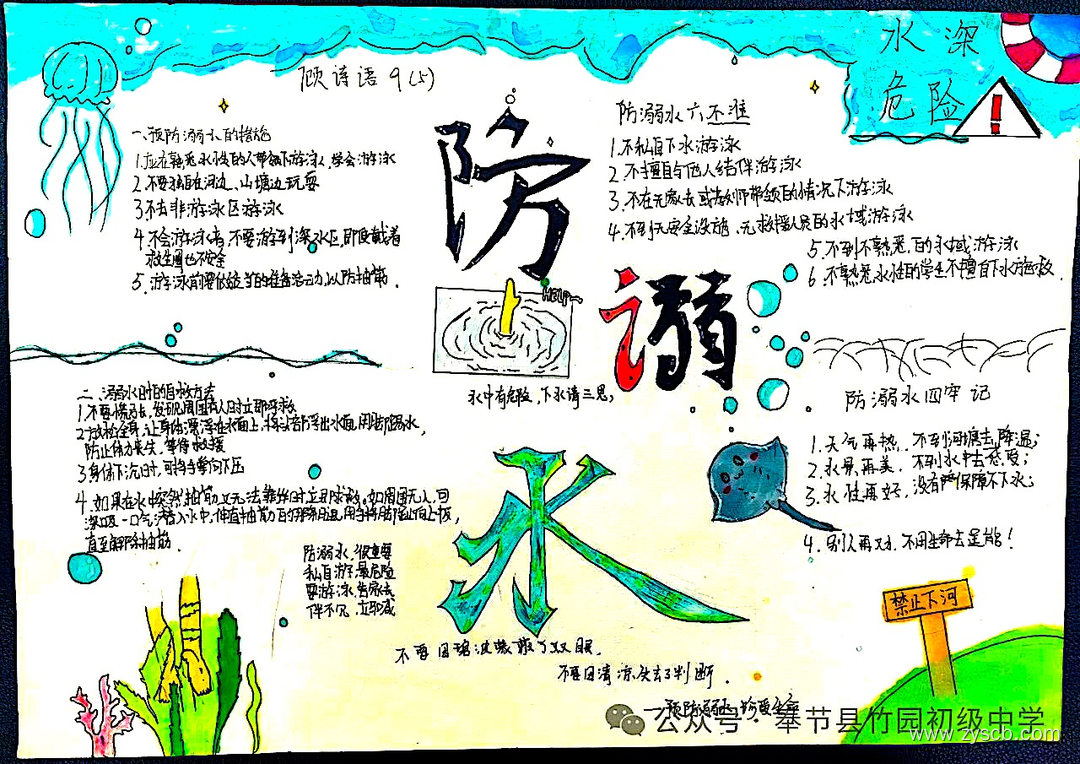 水深
危险
顾诗语 9(5)
防
溺
水
一、预防溺水的措施
1.应在熟悉水性的人带领下游泳,学会游泳
2.不要独自在河边、山塘边玩耍
3.不去非游泳区游泳
4.不会游泳者,不要游到深水区,即使戴着
救生圈也不安全
5.游泳前要做适当的准备活动,以防抽筋.
防溺水六不准
1.不私自下水游泳
2.不擅自与他人结伴游泳
3.不在无家长或老师带领的情况下游泳
4.不到无安全设施、无救援人员的水域游泳
5.不到不熟悉的水域游泳
6.不熟悉水性的学生不擅自下水施救.
HELP~
水中有危险,下水请三思.
二、溺水时的自救方法
1.不要慌张,发现周围有人时立即呼救
2.放松全身,让身体漂浮在水面上,将头部浮出水面,用脚踢水,
防止体力丧失,等待救援
3.身体下沉时,可将手掌向下压
4.如果在水中突然抽筋,又无法靠岸时,立即求救.如周围无人,可
深吸一口气潜入水中,伸直抽筋的那条腿,用手将脚趾向上扳,
防溺水四牢记
1.天气再热,不到河塘去降温;
2.水景再美,不到水中去感受;
3.水性再好,没有保障不下水;
4.别人再,不用生命去逞能!
防溺水,很重要
私自游最危险
要游泳,
伴不冗,立
不要因碧波
不要因清凉失去了判断.
一预防溺水,珍爱生命
禁止下河
公众号·奉节县竹园初级中学
www.zyscb.com